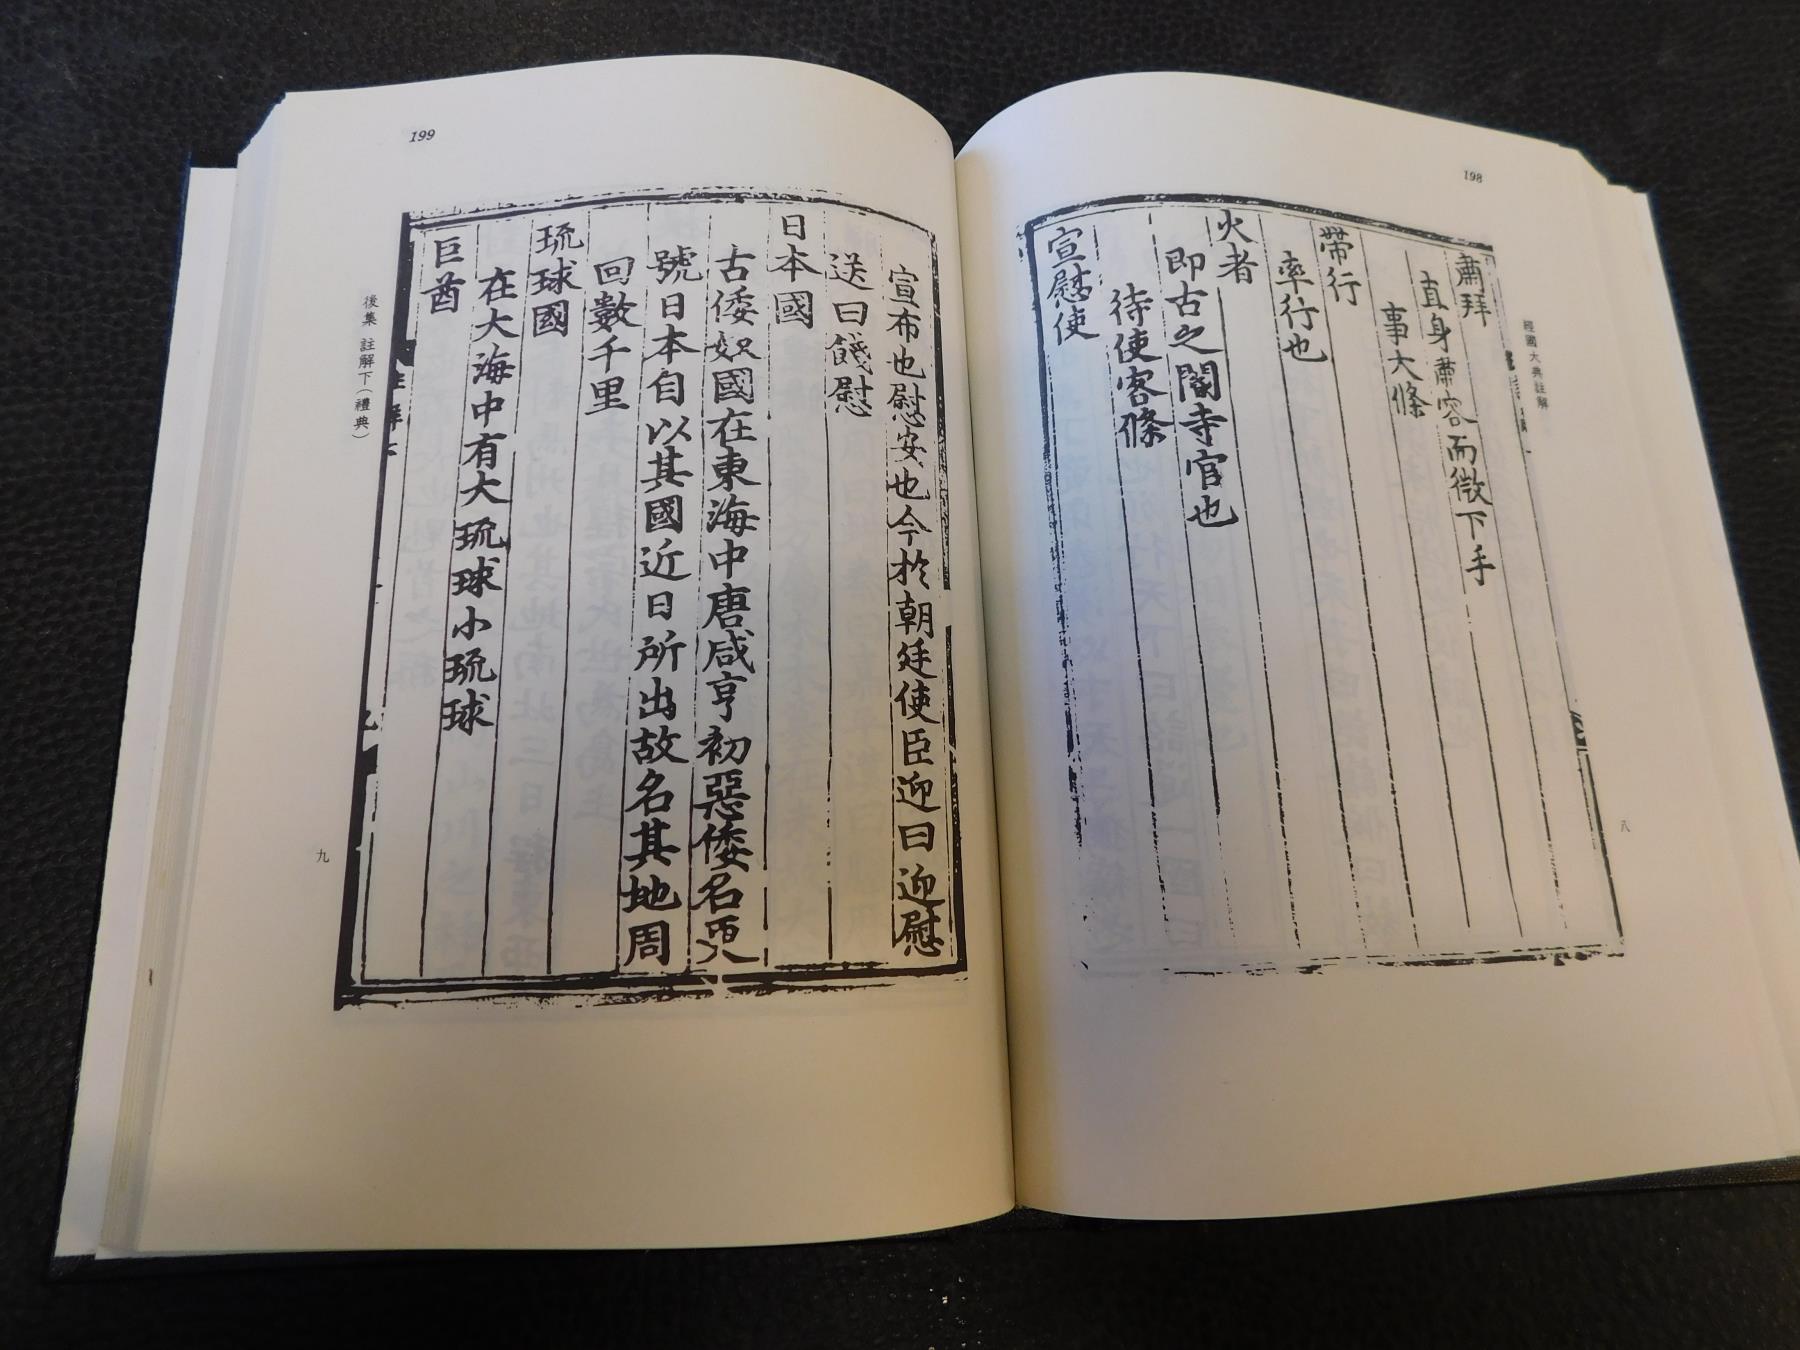 198
經國大典註解
肅拜
直身肅容而微下手
事大條
帶行
率行也
火者
即古之閽寺官也
待使客條
宣慰使
八
199
宣布也慰安也今於朝廷使臣迎曰迎慰
送曰餞慰
日本國
古倭奴國在東海中唐咸亨初惡倭名更
號日本自以其國近日所出故名其地周
回數千里
琉球國
在大海中有大琉球小琉球
巨酋
註解下
後集 註解下(禮典)
九